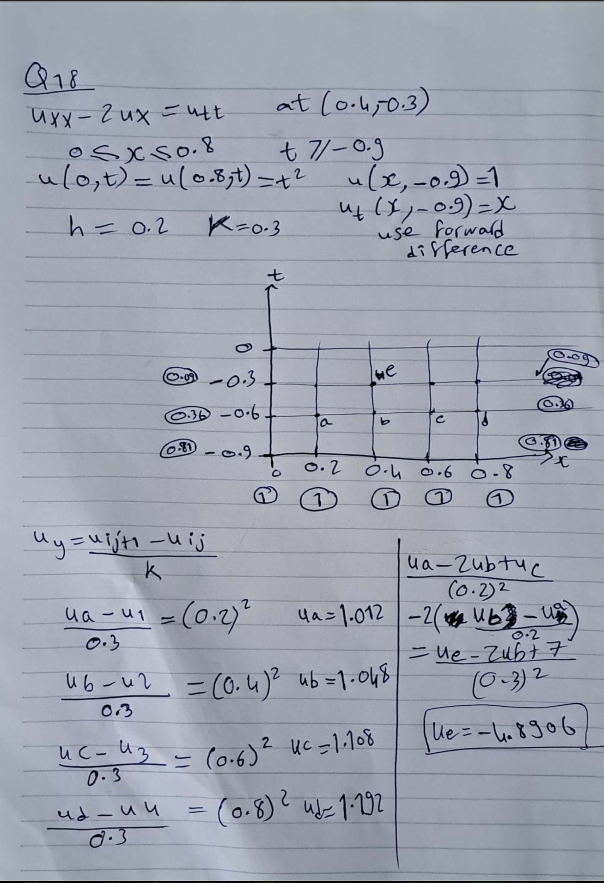 Q18
uxx - 2ux = utt at (0.4,-0.3)
0 ≤ x ≤ 0.8 t ≥ -0.9
u(0,t) = u(0.8,t) = t² u(x,-0.9) = 1
ut (x,-0.9) = x
h = 0.2 K = 0.3 use forward
difference
t
0
0.09 -0.3 e 0.09
0.36 -0.6 a b c d 0.36
0.81 -0.9 0.81
x
0 0.2 0.4 0.6 0.8
1 1 1 1 1
uy = uij+1 - uij / K
ua - u1 / 0.3 = (0.2)² ua = 1.012
ub - u2 / 0.3 = (0.4)² ub = 1.048
uc - u3 / 0.3 = (0.6)² uc = 1.108
ud - u4 / 0.3 = (0.8)² ud = 1.192
ua - 2ub + uc / (0.2)²
-2( ub - ua / 0.2 )
= ue - 2ub + 7 / (0.3)²
ue = -4.8906